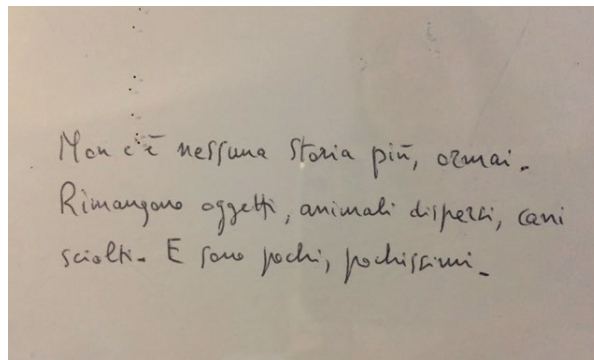 Non c'è nessuna storia più, ormai.
Rimangono oggetti, animali dispersi, cani
sciolti. E sono pochi, pochissimi.